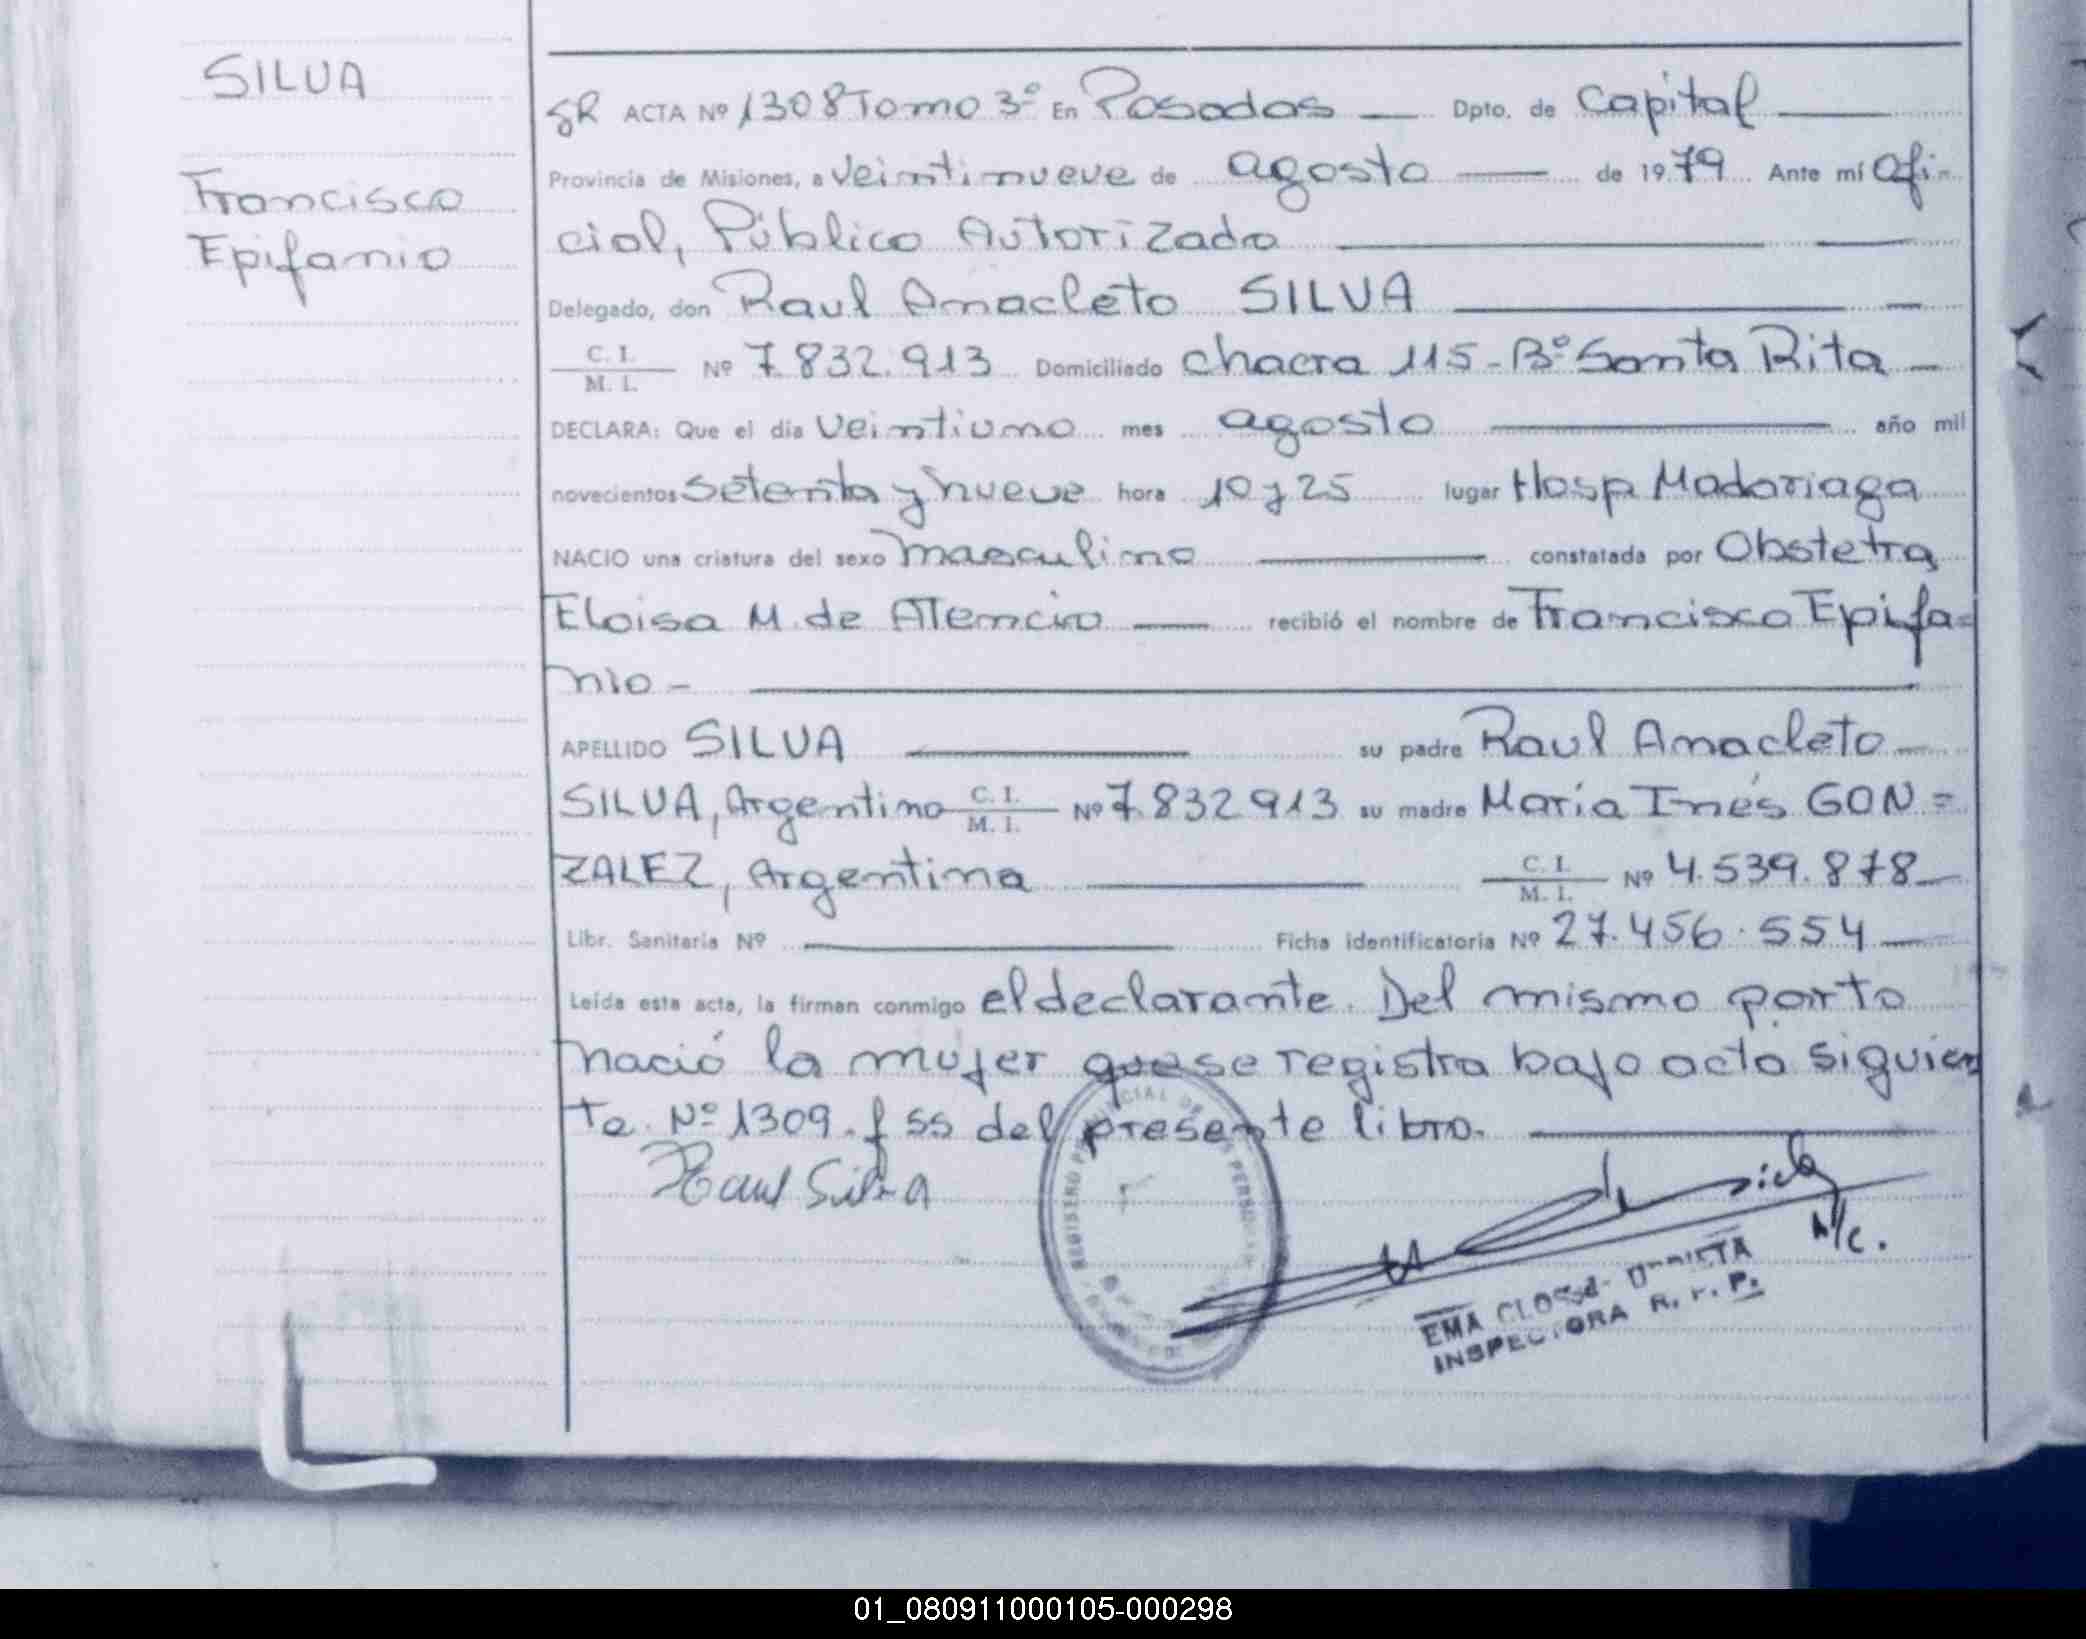 SILVA
Francisco
Epifanio
SR ACTA Nº 1308 Tomo 3º En Posadas Dpto. de Capital
Provincia de Misiones, a veintinueve de agosto de 1979 Ante mí Ofi-
cial, Público Autorizado
Delegado, don Raul Anacleto SILVA
C. I. / M. I. Nº 7.832.913 Domiciliado chacra 115 - Bº Santa Rita
DECLARA: Que el día veintiuno mes agosto año mil
novecientos setenta y nueve hora 10 y 25 lugar Hosp Madariaga
NACIO una criatura del sexo masculino constatada por Obstetra
Eloisa M. de Atencio recibió el nombre de Francisco Epifa=
nio -
APELLIDO SILVA su padre Raul Anacleto
SILVA, Argentino C. I. / M. I. Nº 7.832.913 su madre María Inés GON=
ZALEZ, Argentina C. I. / M. I. Nº 4.539.878
Libr. Sanitaria Nº Ficha identificatoria Nº 27.456.554
Leída esta acta, la firman conmigo el declarante. Del mismo parto
nació la mujer que se registra bajo acta siguien
te Nº 1309. f 55 del presente libro.
Raul Silva
REGISTRO PROVINCIAL DE LAS PERSONAS
A/C.
EMA
INSPECTORA R. P. P.
01_080911000105-000298